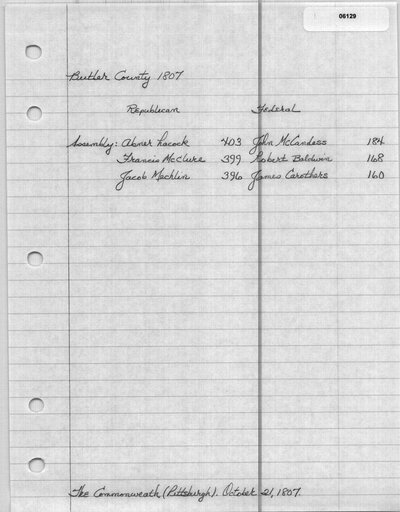 06129
Butler County 1807
Republican Federal
Assembly: Abner Lacock 403 John McCandess 184
Francis McClure 399 Robert Baldwin 168
Jacob Mechlin 396 James Carothers 160
The Commonweath (Pittsburgh). October 21, 1807.